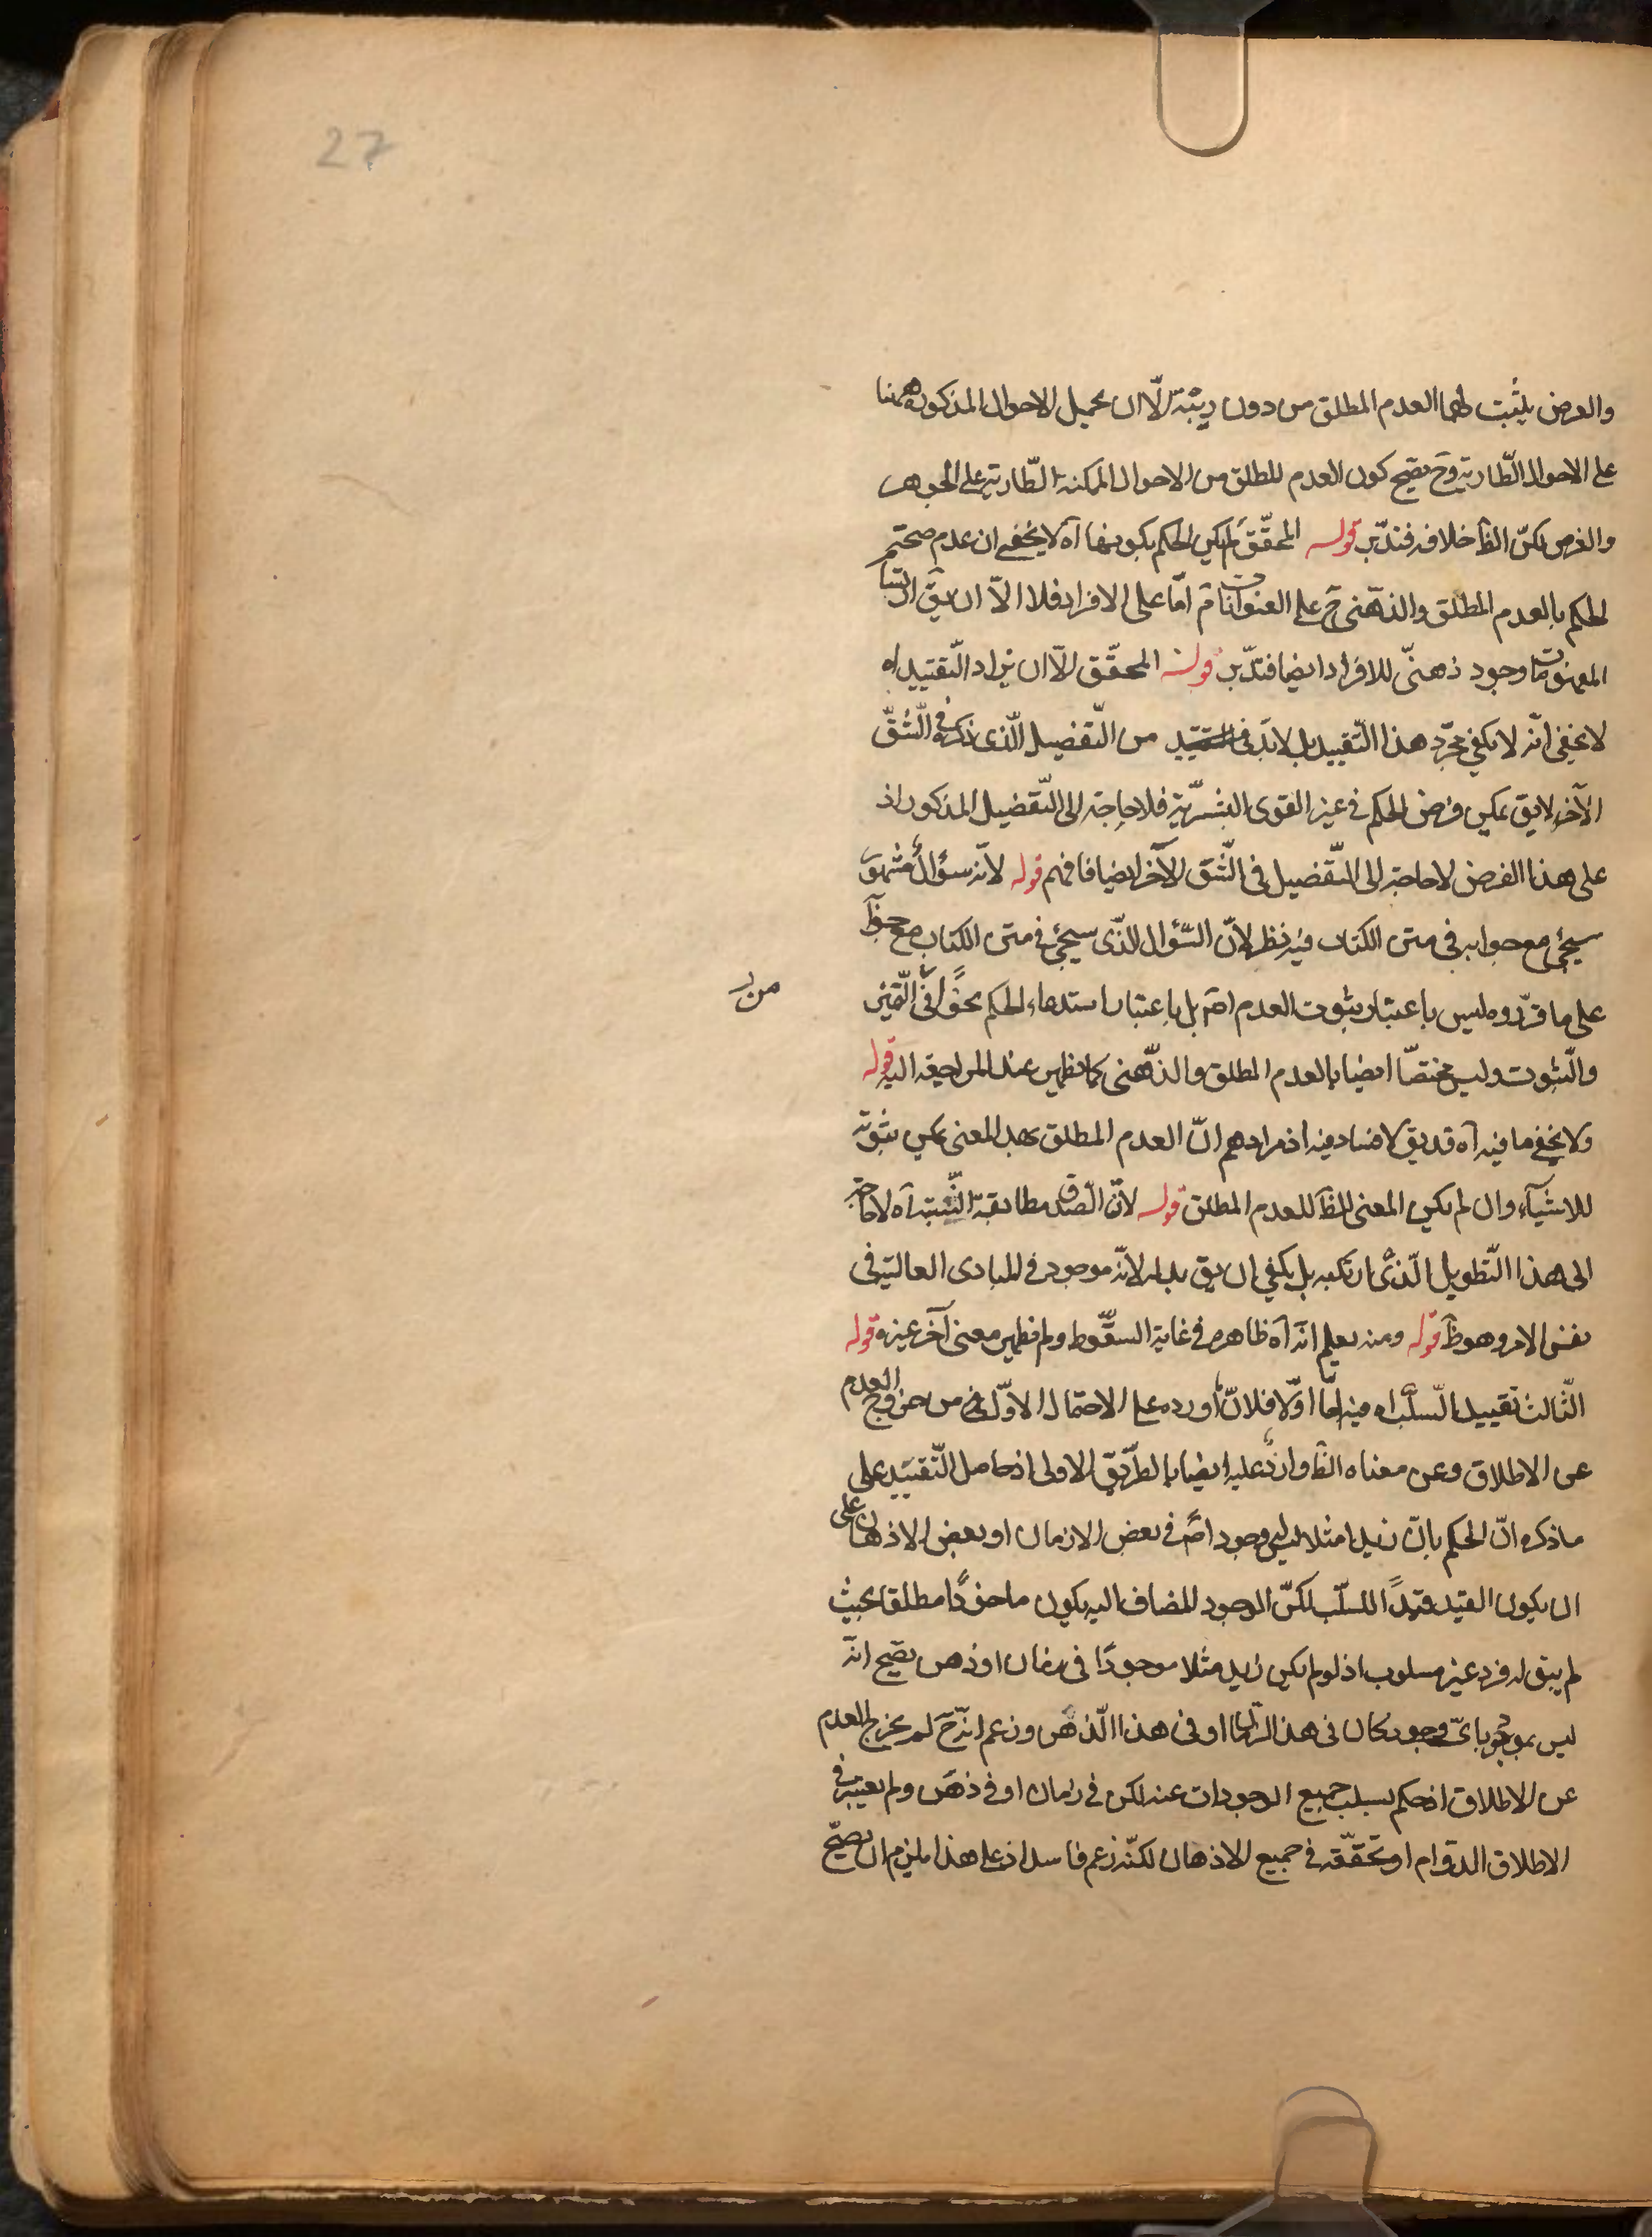 27
والعرض يثبت لهما العدم المطلق من دون ريبة الّا ان يحمل الاحوال المذكورة ههنا
على الاحوال الطّارية وح يصح كون العدم المطلق من الاحوال الممكنة الطّارية على الجوهر
والعرض لكنّ الظ خلافه فتدبّر قوله المحقّق لم يكن الحكم بكونهما آه لا يخفى ان عدم صحّة
الحكم بالعدم المطلق والذهنى ح على العنوانات تم امّا على الافراد فلا الّا ان يق
المفهومات وجود ذهنىّ للافراد ايضا فتدبّر قوله المحقّق الّا ان يراد التّقييد اه
لا يخفى انّه لا يكفى مجرّد هذا التّقييد بل لابدّ فى من التّفصيل الّذى ذكره فى الشّقّ
الآخر لا يق يمكن فرض الحكم فى غير القوى البشريّة فلا حاجة الى التّفصيل المذكور اذ
على هذا الفرض لا حاجة الى التّفصيل فى الشّق الآخر ايضا فافهم قوله لانّه سؤال مشهور
سيجئ مع جوابه فى متن الكتاب فيه نظر لانّ السّؤال الّذى سيجئ فى متن الكتاب مع جوابه
على ما قرّروه ليس باعتبار ثبوت العدم اصم بل باعتبار استدعاء الحكم نحوًا من التّميز
من
والثّبوت وليس مختصّا ايضا بالعدم المطلق والذّهنى كما يظهر عند المراجعة اليه قوله
ولا يخفى ما فيه آه قد يق لا فساد فيه اذ مرادهم انّ العدم المطلق بهذا المعنى يمكن ثبوته
للاشيآء وان لم يكن المعنى الظ للعدم المطلق قوله لانّ الصّدق مطابقة النّسبة آه لا حاجة
الى هذا التّطويل الّذى ارتكبه بل يكفى ان يق بدله لانّه موجود فى المبادى العالية فى
نفس الامر وهو ظ قوله ومنه يعلم انّه آه ظاهره فى غاية السقوط ولم يظهر معنى آخر غيره قوله
الثّالث تقييد السّلب اه فيه امّا اوّلا فلانّ ما اورده على الاحتمال الاوّل من خروج العدم
عن الاطلاق وعن معناه الظ وارد عليه ايضا بالطّريق الاولى اذ حاصل التّقييد على
ما ذكره انّ الحكم بانّ زيدا مثلا ليس وجود اصم فى بعض الازمان او بعض الاذهان على
ان يكون القيد قيدًا للسّلب لكنّ الوجود المضاف اليه يكون ماخوذًا مطلقا بحيث
لم يبق له فرد غير مسلوب اذ لو لم يكن زيد مثلا موجودًا فى زمان او ذهن يصح انّه
ليس بموجود باىّ وجود كان فى هذا الزّمان او فى هذا الّذهن وزعم انّه ح لم يخرج العدم
عن الاطلاق اذ حكم بسلب جميع الوجودات عنه لكن فى زمان او فى ذهن ولم يعتبر فى
الاطلاق الدّوام او تحقّقه فى جميع الاذهان لكنّه زعم فاسد اذ على هذا يلزم ان يصحّ